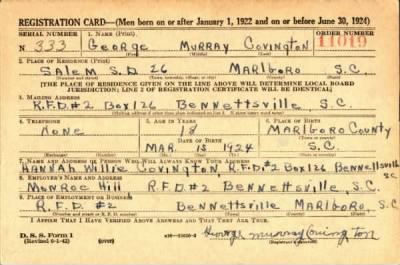 REGISTRATION CARD—(Men born on or after January 1, 1922 and on or before June 30, 1924)
SERIAL NUMBER 1. NAME (Print) ORDER NUMBER
N 333 George Murray Covington 11019
(First) (Middle) (Last)
2. PLACE OF RESIDENCE (Print)
Salem S.D. 26 Marlboro S.C.
(Number and street) (Town, township, village, or city) (County) (State)
[THE PLACE OF RESIDENCE GIVEN ON THE LINE ABOVE WILL DETERMINE LOCAL BOARD
JURISDICTION; LINE 2 OF REGISTRATION CERTIFICATE WILL BE IDENTICAL]
3. MAILING ADDRESS
R.F.D.#2 Box 126 Bennettsville, S.C.
[Mailing address if other than place indicated on line 2. If same insert word same]
4. TELEPHONE 5. AGE IN YEARS 6. PLACE OF BIRTH
None 18 Marlboro County
DATE OF BIRTH (Town or county)
Mar. 15 1924 S.C.
(Exchange) (Number) (Mo.) (Day) (Yr.) (State or country)
7. NAME AND ADDRESS OF PERSON WHO WILL ALWAYS KNOW YOUR ADDRESS
Hannah Willie Covington, R.F.D.#2 Box 126 Bennettsville SC
8. EMPLOYER'S NAME AND ADDRESS
Monroe Hill R.F.D.#2 Bennettsville, S.C.
9. PLACE OF EMPLOYMENT OR BUSINESS
R.F.D. #2 Bennettsville Marlboro, SC
(Number and street or R. F. D. number) (Town) (County) (State)
I AFFIRM THAT I HAVE VERIFIED ABOVE ANSWERS AND THAT THEY ARE TRUE.
D. S. S. Form 1
(Revised 6-1-42) (over) George Murray Covington
(Registrant's signature)